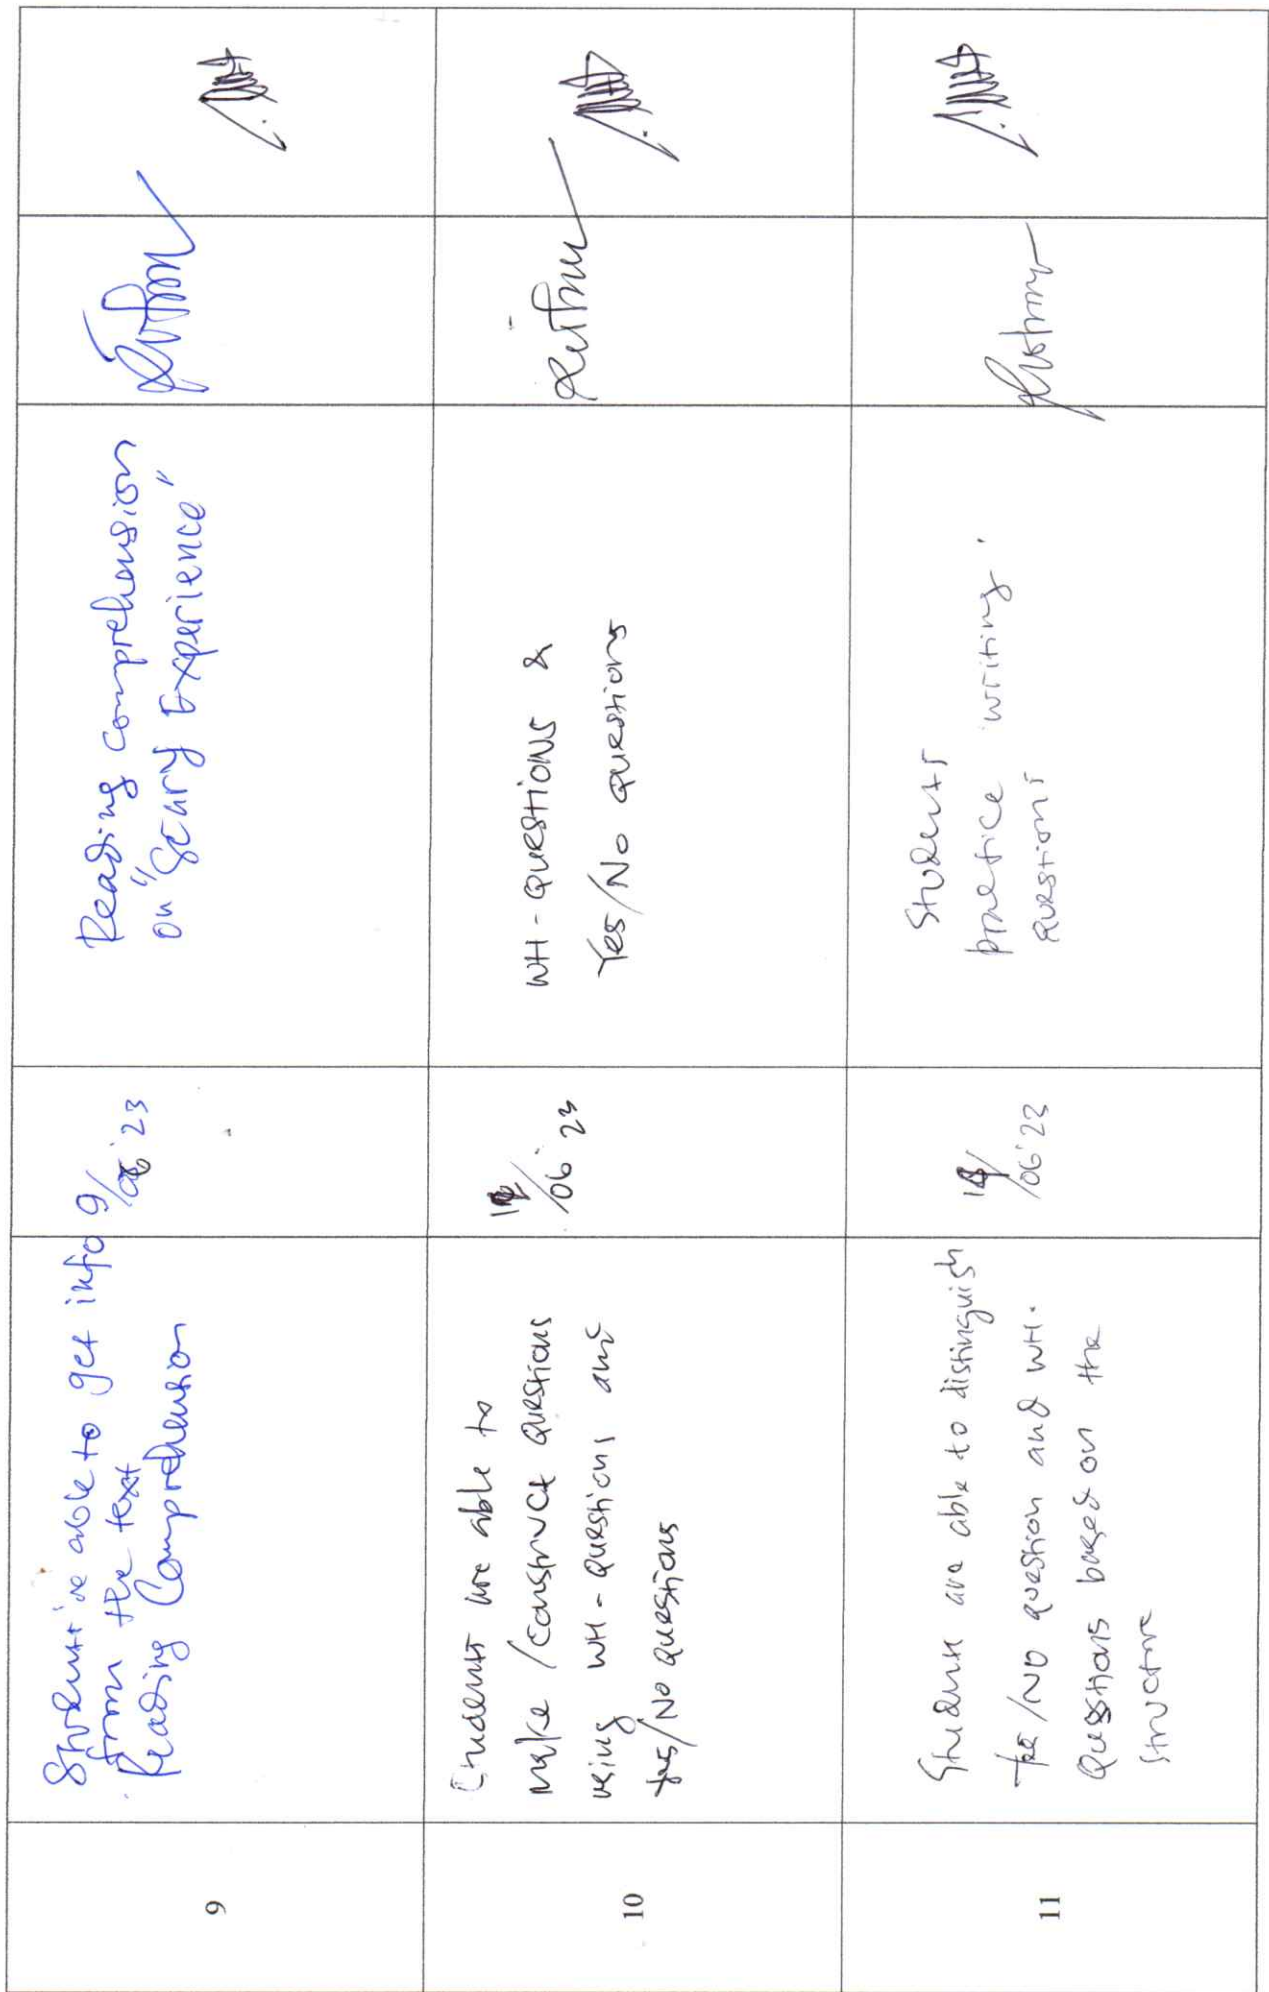 9
Student're able to get info
from the text
Reading Comprehension
9/06'23
Reading comprehension
on "Scary Experience"
10
Students are able to
make/construct questions
using WH-Questions and
Yes/No Questions
/06'23
WH-QUESTIONS &
Yes/No Questions
11
Students are able to distinguish
Yes/NO question and WH-
Questions based on the
structure
/06'23
Students
practice writing
questions